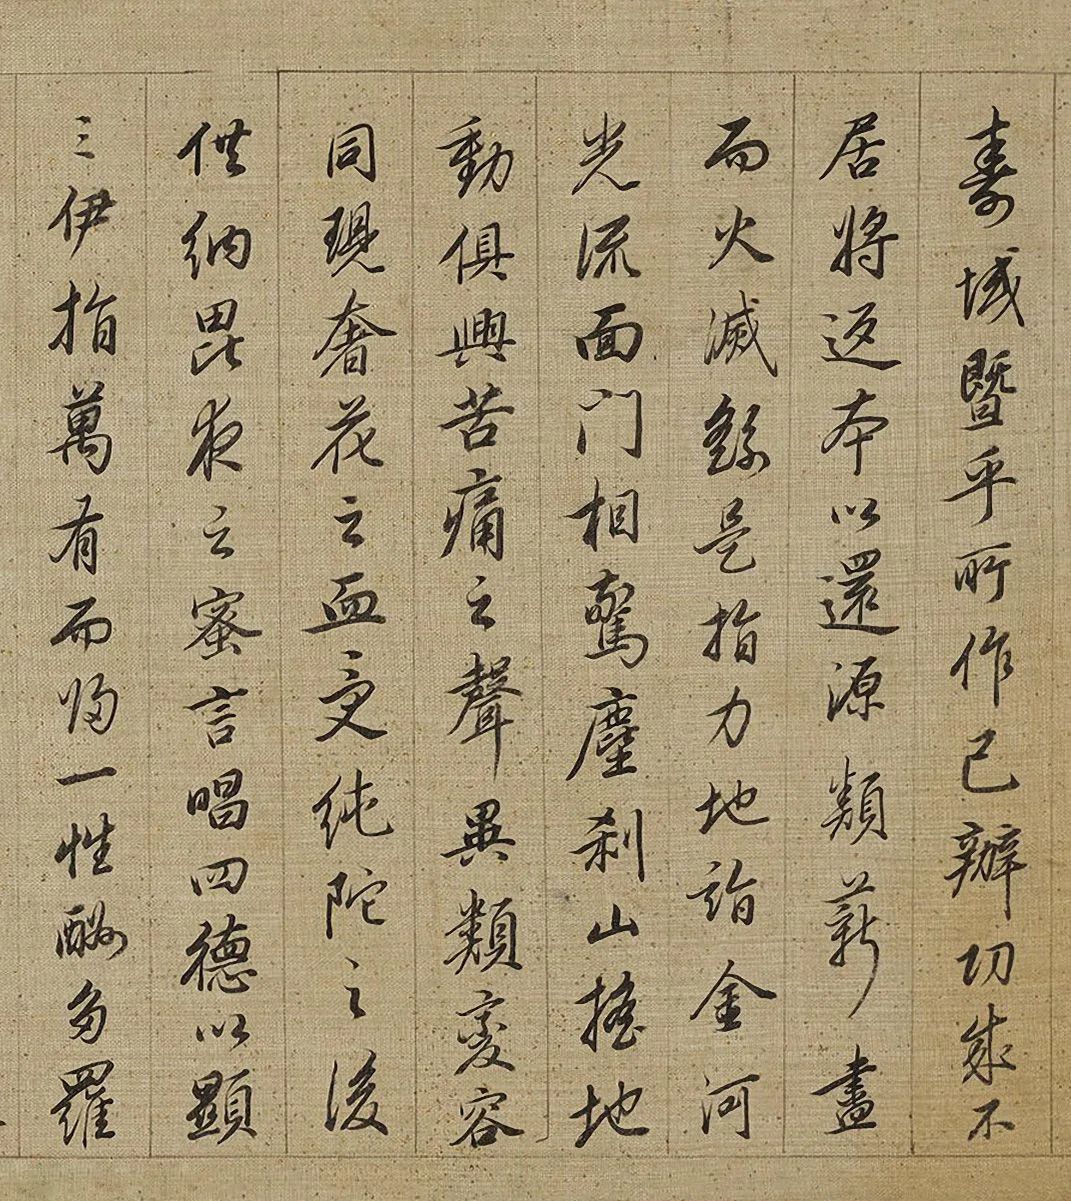 壽域暨乎所作已辦功成不
居將返本以還源類薪盡
而火滅繇是指力地詣金河
光流面門相驚塵刹山搖地
動俱興苦痛之聲異類變容
同現奢花之血受純陀之後
供納毘夜之蜜言唱四德以顯
三伊指萬有而歸一性酬多羅